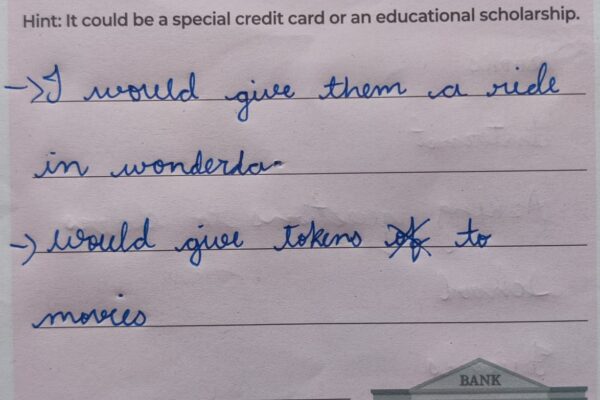 Hint: It could be a special credit card or an educational scholarship.
→ I would give them a ride
in wonderla
→ would give tokens to
movies
BANK